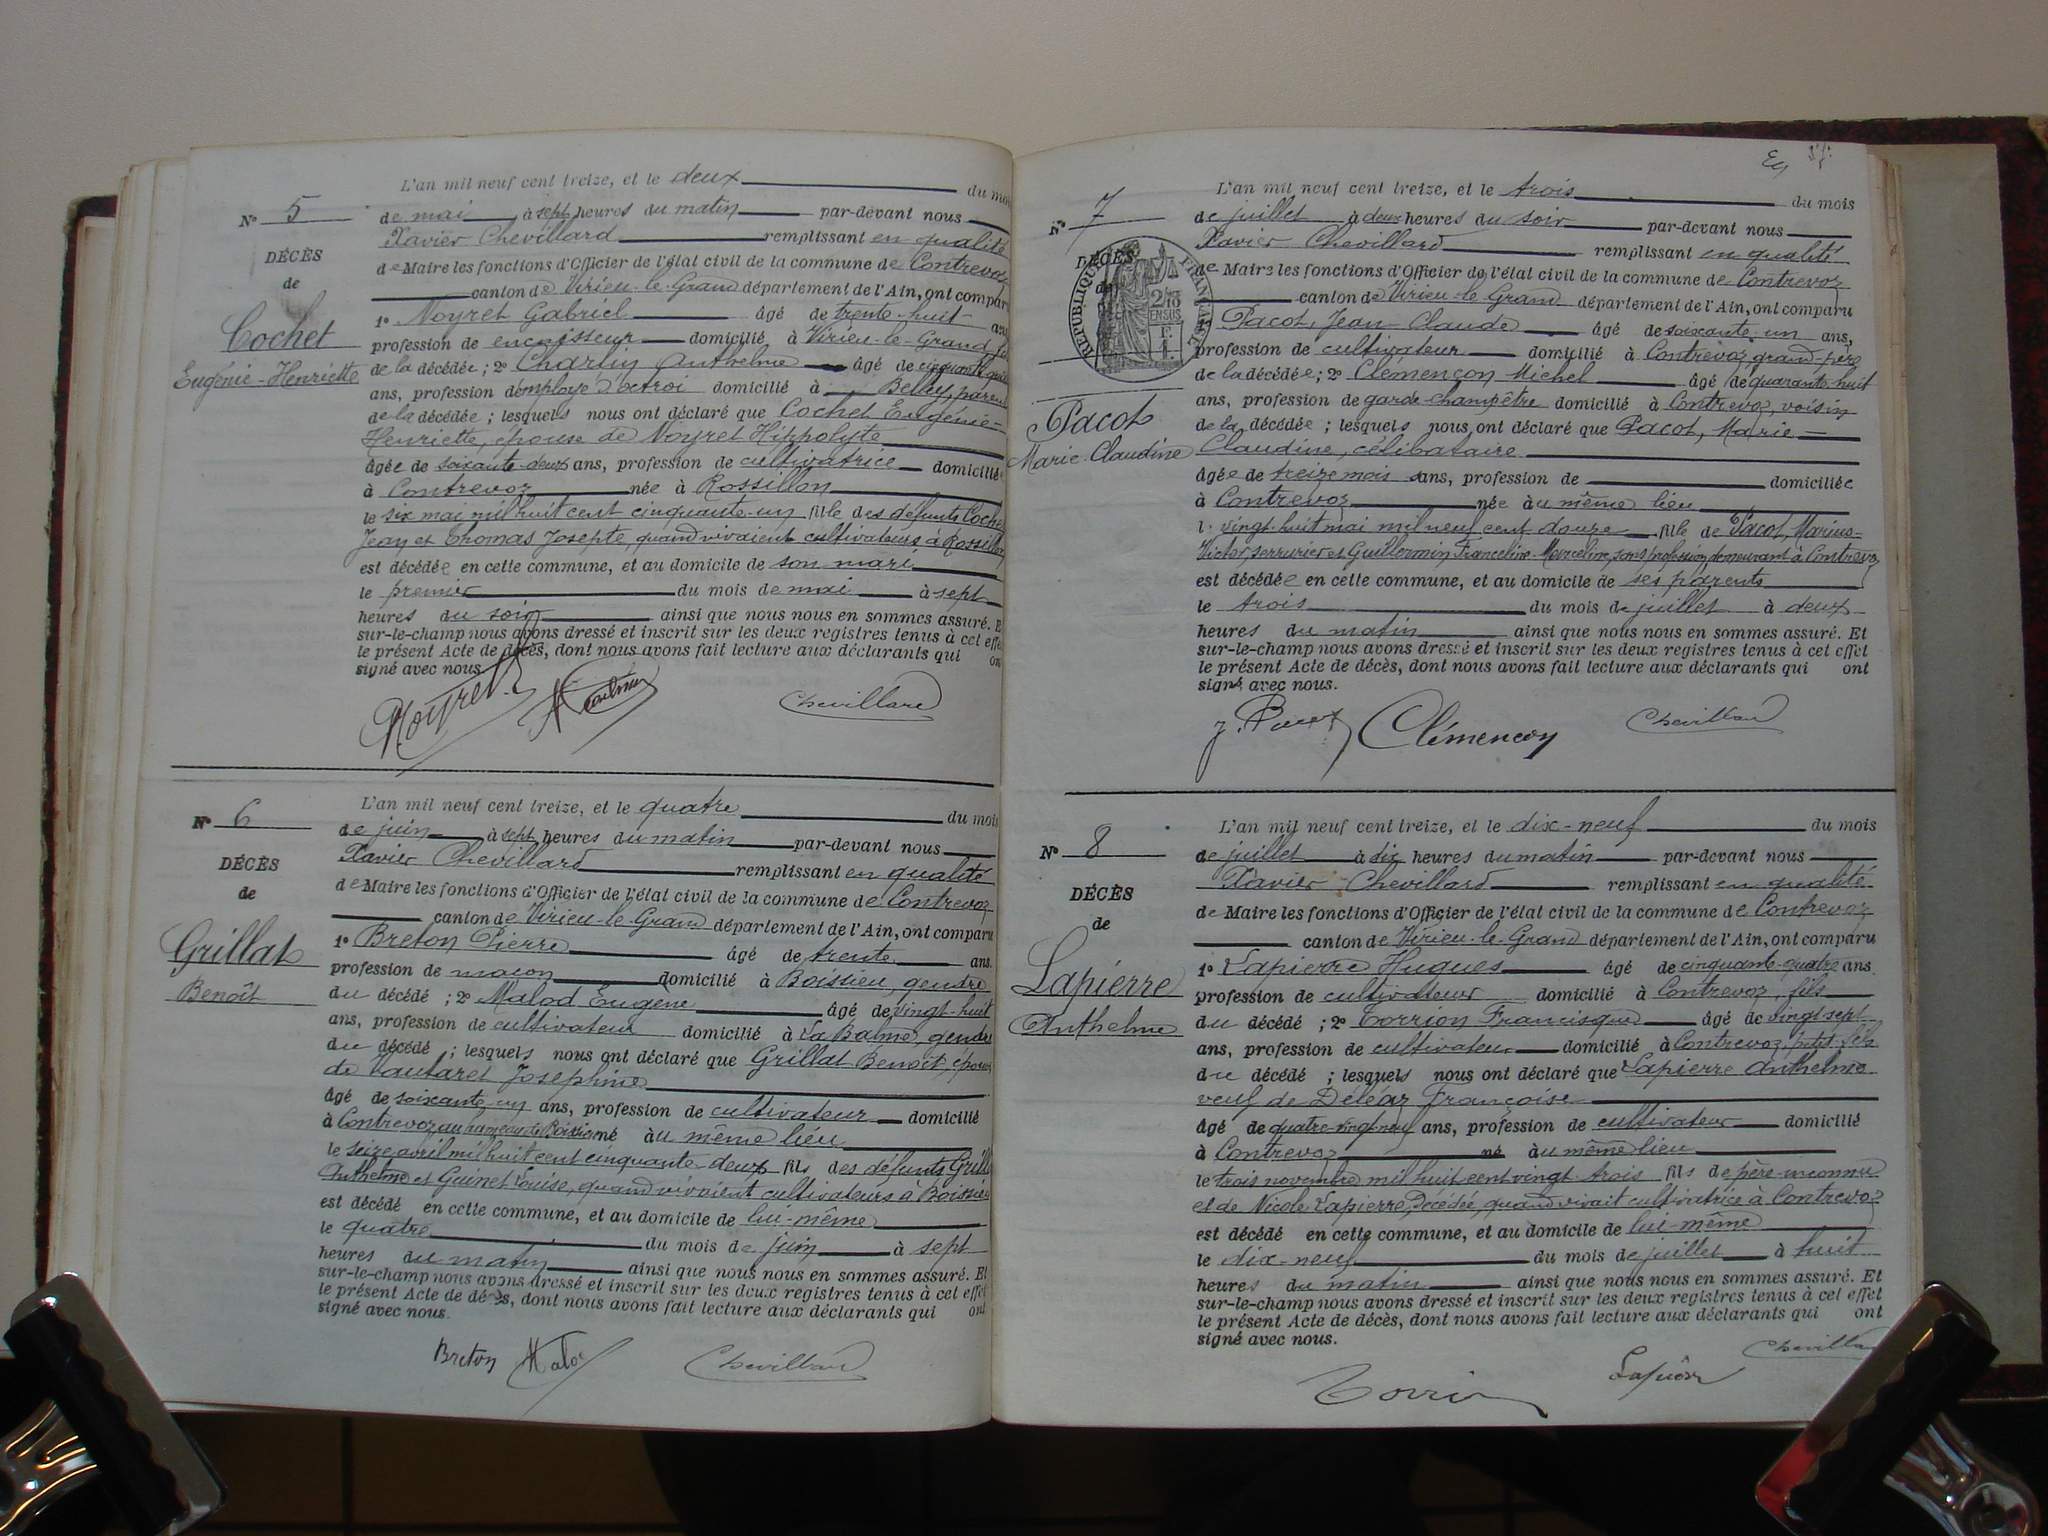 L'an mil neuf cent treize, et le deux du mois
N° 5 de mai à sept heures du matin par-devant nous
Xavier Chevillard remplissant en qualité
DÉCÈS
de Maire les fonctions d'Officier de l'état civil de la commune de Contrevoz
de
canton de Virieu-le-Grand département de l'Ain, ont comparu
1° Noyret Gabriel âgé de trente-huit ans
Cochet
profession de encaisseur domicilié à Virieu-le-Grand, fils
Eugénie-Henriette
de la décédée ; 2° Charlin Anthelme âgé de cinquante quatre
ans, profession d'employé d'octroi domicilié à Belley, parent
de la décédée ; lesquels nous ont déclaré que Cochet Eugénie-
Henriette, épouse de Noyret Hippolyte
âgée de soixante-deux ans, profession de cultivatrice domiciliée
à Contrevoz née à Rossillon
le six mai mil huit cent cinquante-un fille des défunts Cochet
Jean et Thomas Josepte, quand vivaient cultivateurs à Rossillon
est décédée en cette commune, et au domicile de son mari
le premier du mois de mai à sept
heures du soir ainsi que nous nous en sommes assuré. Et
sur-le-champ nous avons dressé et inscrit sur les deux registres tenus à cet effet
le présent Acte de décès, dont nous avons fait lecture aux déclarants qui ont
signé avec nous.
Noyret Chevillard
L'an mil neuf cent treize, et le quatre du mois
N° 6
de juin à sept heures du matin par-devant nous
Xavier Chevillard remplissant en qualité
DÉCÈS
de Maire les fonctions d'Officier de l'état civil de la commune de Contrevoz
de
canton de Virieu-le-Grand département de l'Ain, ont comparu
Grillat
1° Breton Pierre âgé de trente ans
profession de maçon domicilié à Boissieu, gendre
Benoît
du décédé ; 2° Malod Eugène âgé de vingt-huit
ans, profession de cultivateur domicilié à La Balme, gendre
du décédé ; lesquels nous ont déclaré que Grillat Benoît, époux
de Vautaret Joséphine
âgé de soixante-un ans, profession de cultivateur domicilié
à Contrevoz au hameau de Boissieu né au même lieu
le seize avril mil huit cent cinquante-deux fils des défunts Grillat
Anthelme et Guinet Louise, quand vivaient cultivateurs à Boissieu
est décédé en cette commune, et au domicile de lui-même
le quatre du mois de juin à sept
heures du matin ainsi que nous nous en sommes assuré. Et
sur-le-champ nous avons dressé et inscrit sur les deux registres tenus à cet effet
le présent Acte de décès, dont nous avons fait lecture aux déclarants qui ont
signé avec nous.
Breton Malod Chevillard
L'an mil neuf cent treize, et le trois du mois
N° 7
de juillet à deux heures du soir par-devant nous
Xavier Chevillard remplissant en qualité
DÉCÈS
de Maire les fonctions d'Officier de l'état civil de la commune de Contrevoz
de
RÉPUBLIQUE FRANÇAISE
2/10 EN SUS
canton de Virieu-le-Grand département de l'Ain, ont comparu
Pacot, Jean-Claude âgé de soixante-un ans,
profession de cultivateur domicilié à Contrevoz, grand-père
de la décédée ; 2° Clémençon Michel âgé de quarante-huit
ans, profession de garde-champêtre domicilié à Contrevoz, voisin
Pacot
de la décédée ; lesquels nous ont déclaré que Pacot, Marie-
Marie-Claudine
Claudine, célibataire
âgée de treize mois ans, profession de domiciliée
à Contrevoz née au même lieu
le vingt-huit mai mil neuf cent douze fille de Pacot, Marius-
Victor, serrurier et Guillermin Franceline-Marceline, sans profession, demeurant à Contrevoz
est décédée en cette commune, et au domicile de ses parents
le trois du mois de juillet à deux
heures du matin ainsi que nous nous en sommes assuré. Et
sur-le-champ nous avons dressé et inscrit sur les deux registres tenus à cet effet
le présent Acte de décès, dont nous avons fait lecture aux déclarants qui ont
signé avec nous.
J. Pacot Clémençon Chevillard
L'an mil neuf cent treize, et le dix-neuf du mois
N° 8
de juillet à dix heures du matin par-devant nous
Xavier Chevillard remplissant en qualité
DÉCÈS
de Maire les fonctions d'Officier de l'état civil de la commune de Contrevoz
de
canton de Virieu-le-Grand département de l'Ain, ont comparu
1° Lapierre Hugues âgé de cinquante-quatre ans
Lapierre
profession de cultivateur domicilié à Contrevoz, fils
Anthelme
du décédé ; 2° Torrion Francisque âgé de vingt-sept
ans, profession de cultivateur domicilié à Contrevoz, petit-fils
du décédé ; lesquels nous ont déclaré que Lapierre Anthelme
veuf de Déléaz Françoise
âgé de quatre-vingt-neuf ans, profession de cultivateur domicilié
à Contrevoz né au même lieu
le trois novembre mil huit cent vingt-trois fils de père inconnu
et de Nicole Lapierre, Décédée, quand vivait cultivatrice à Contrevoz
est décédé en cette commune, et au domicile de lui-même
le dix-neuf du mois de juillet à huit
heures du matin ainsi que nous nous en sommes assuré. Et
sur-le-champ nous avons dressé et inscrit sur les deux registres tenus à cet effet
le présent Acte de décès, dont nous avons fait lecture aux déclarants qui ont
signé avec nous.
Chevillard
Lapierre